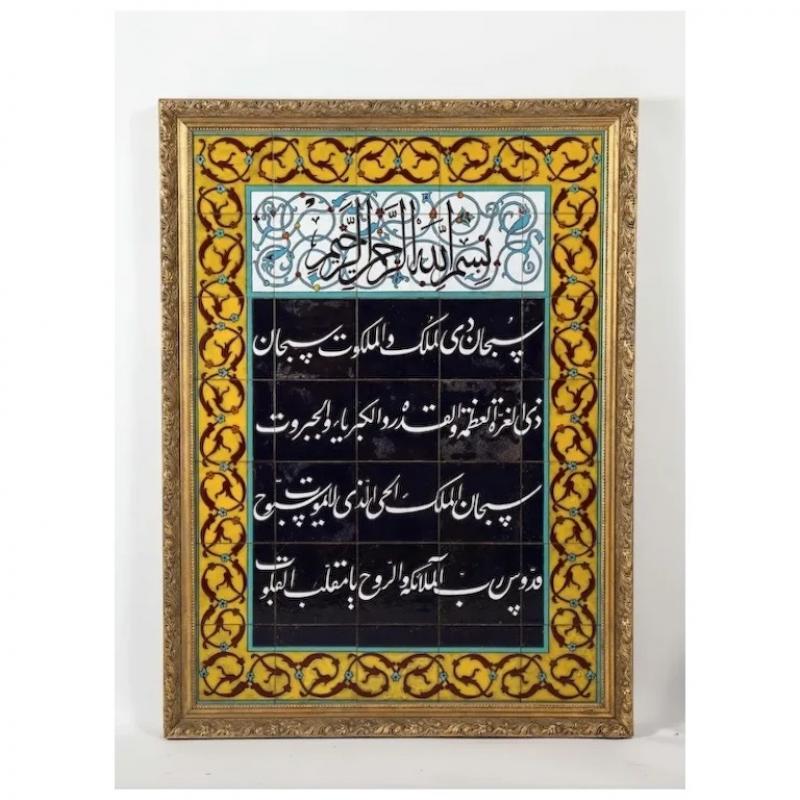 بِسْمِ اللّٰهِ الرَّحْمٰنِ الرَّحِيْمِ
سبحان ذی الملک والملکوت سبحان
ذی الغرة العظمة والقدره والکبریاء والجبروت
سبحان الملک الحی الذی لایموت سبّوح
قدّوس ربّ الملائکة والروح یا مقلّب القلوب